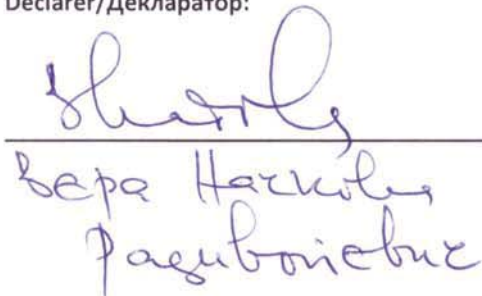 Declarer/Декларатор:
Вера Начкова
Радивоиевич